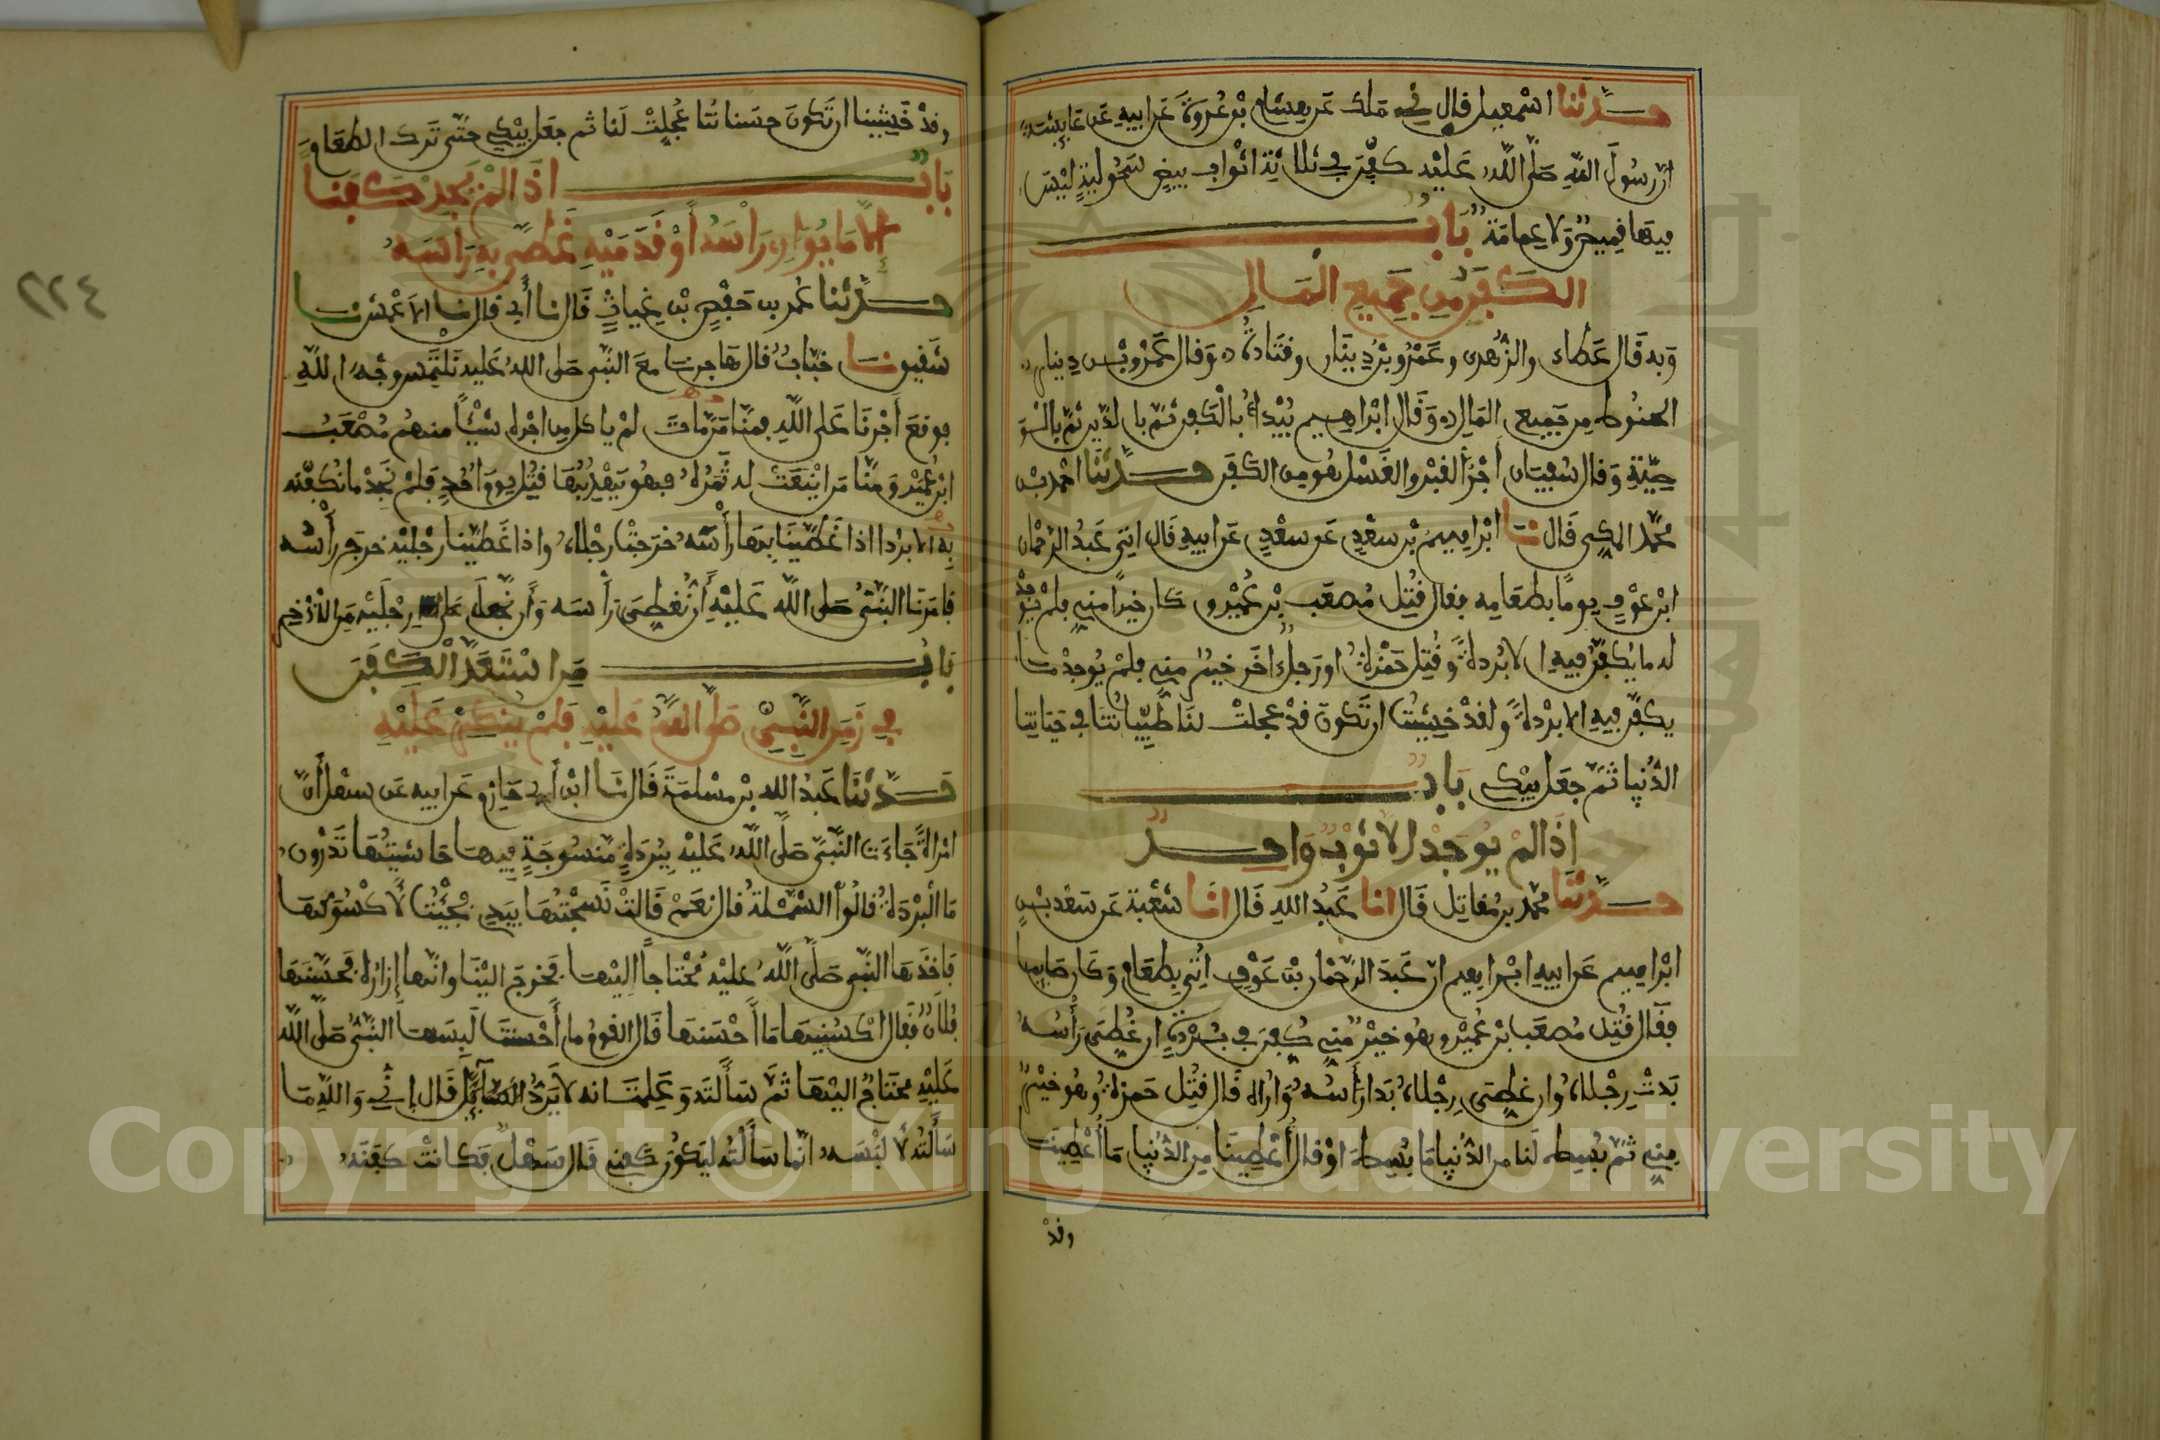 حدثنا اسمعيل قال ني ملك عن هشام بن عروة عن ابيه عن عايشة
ان رسول الله صلى الله عليه كفن في ثلاثة اثواب بيض سحولية ليس
فيها قميص ولا عمامة باب
الكفن من جميع المال
وبه قال عطاء والزهري وعمرو بن دينار وقتادة وقال عمرو بن دينار
الحنوط من جميع المال وقال ابراهيم يبدأ بالكفن ثم بالدين ثم بالو
صية وقال سفيان أجر القبر والغسل هو من الكفن حدثنا احمد بن
محمد المكي قال نا ابراهيم بن سعد عن سعد عن ابيه قال اتي عبد الرحمان
ابن عوف يوما بطعامه فقال قتل مصعب بن عمير وكان خيرا مني فلم يوجد
له ما يكفن فيه الا بردة وقتل حمزة او رجل اخر خير مني فلم يوجد ما
يكفن فيه الا بردة ولقد خشيت ان تكون قد عجلت لنا طيباتنا في حياتنا
الدنيا ثم جعل يبكي باب
إذا لم يوجد الا ثوب واحد
حدثنا محمد بن مقاتل قال انا عبد الله قال انا شعبة عن سعد بن
ابراهيم عن ابيه ابراهيم ان عبد الرحمان بن عوف اتي بطعام وكان صايما
فقال قتل مصعب بن عمير وهو خير مني كفن في بردة ان غطي رأسه
بدت رجلاه وان غطي رجلاه بدا رأسه وأراه قال قتل حمزة وهو خير
مني ثم بسط لنا من الدنيا ما بسط او قال أعطينا من الدنيا ما أعطينا
وقد
وقد خشينا ان تكون حسناتنا عجلت لنا ثم جعل يبكي حتى ترك الطعام
باب اذا لم يجد كفنا
الا ما يواري رأسه أو قدميه غطي به رأسه
حدثنا عمر بن حفص بن غياث قال نا أبي قال نا الاعمش نا
شقيق نا خباب قال هاجرنا مع النبي صلى الله عليه نلتمس وجه الله
فوقع أجرنا على الله فمنا من مات لم ياكل من اجره شيئا منهم مصعب
ابن عمير ومنا من اينعت له ثمره فهو يهدبها قتل يوم احد فلم نجد ما نكفنه
به الا بردا اذا غطينا بها رأسه خرجت رجلاه واذا غطينا رجليه خرج رأسه
فامرنا النبي صلى الله عليه أن نغطي رأسه وأن نجعل على رجليه من الاذخر
باب من استعد الكفن
في زمن النبي صلى الله عليه فلم ينكر عليه
حدثنا عبد الله بن مسلمة قال نا ابن أبي حازم عن ابيه عن سهل أن
امرأة جاءت النبي صلى الله عليه ببردة منسوجة فيها حاشيتها تدرون
ما البردة قالوا الشملة قال نعم قالت نسجتها بيدي فجئت لأكسوكها
فاخذها النبي صلى الله عليه محتاجا اليها فخرج الينا وانها إزاره فحسنها
فلان فقال اكسنيها ما أحسنها قال القوم ما أحسنت لبسها النبي صلى الله
عليه محتاج اليها ثم سألته وعلمت انه لا يرد سايلا قال إني والله ما
سألته لألبسه انما سألته ليكون كفني قال سهل فكانت كفنه
٤٢٢
Copyright © King Saud University